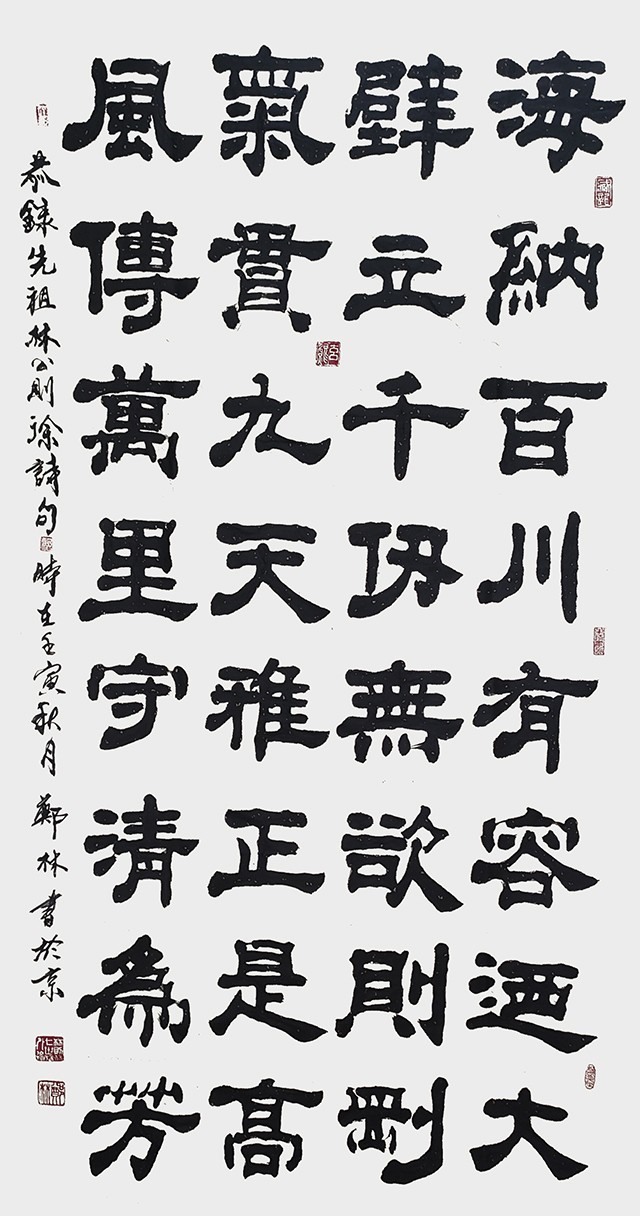 海納百川有容迺大
壁立千仞無欲則剛
氣貫九天雅正是高
風傳萬里守清為芳
恭錄先祖林公則徐詩句 時在壬寅秋月 鄭林書於京